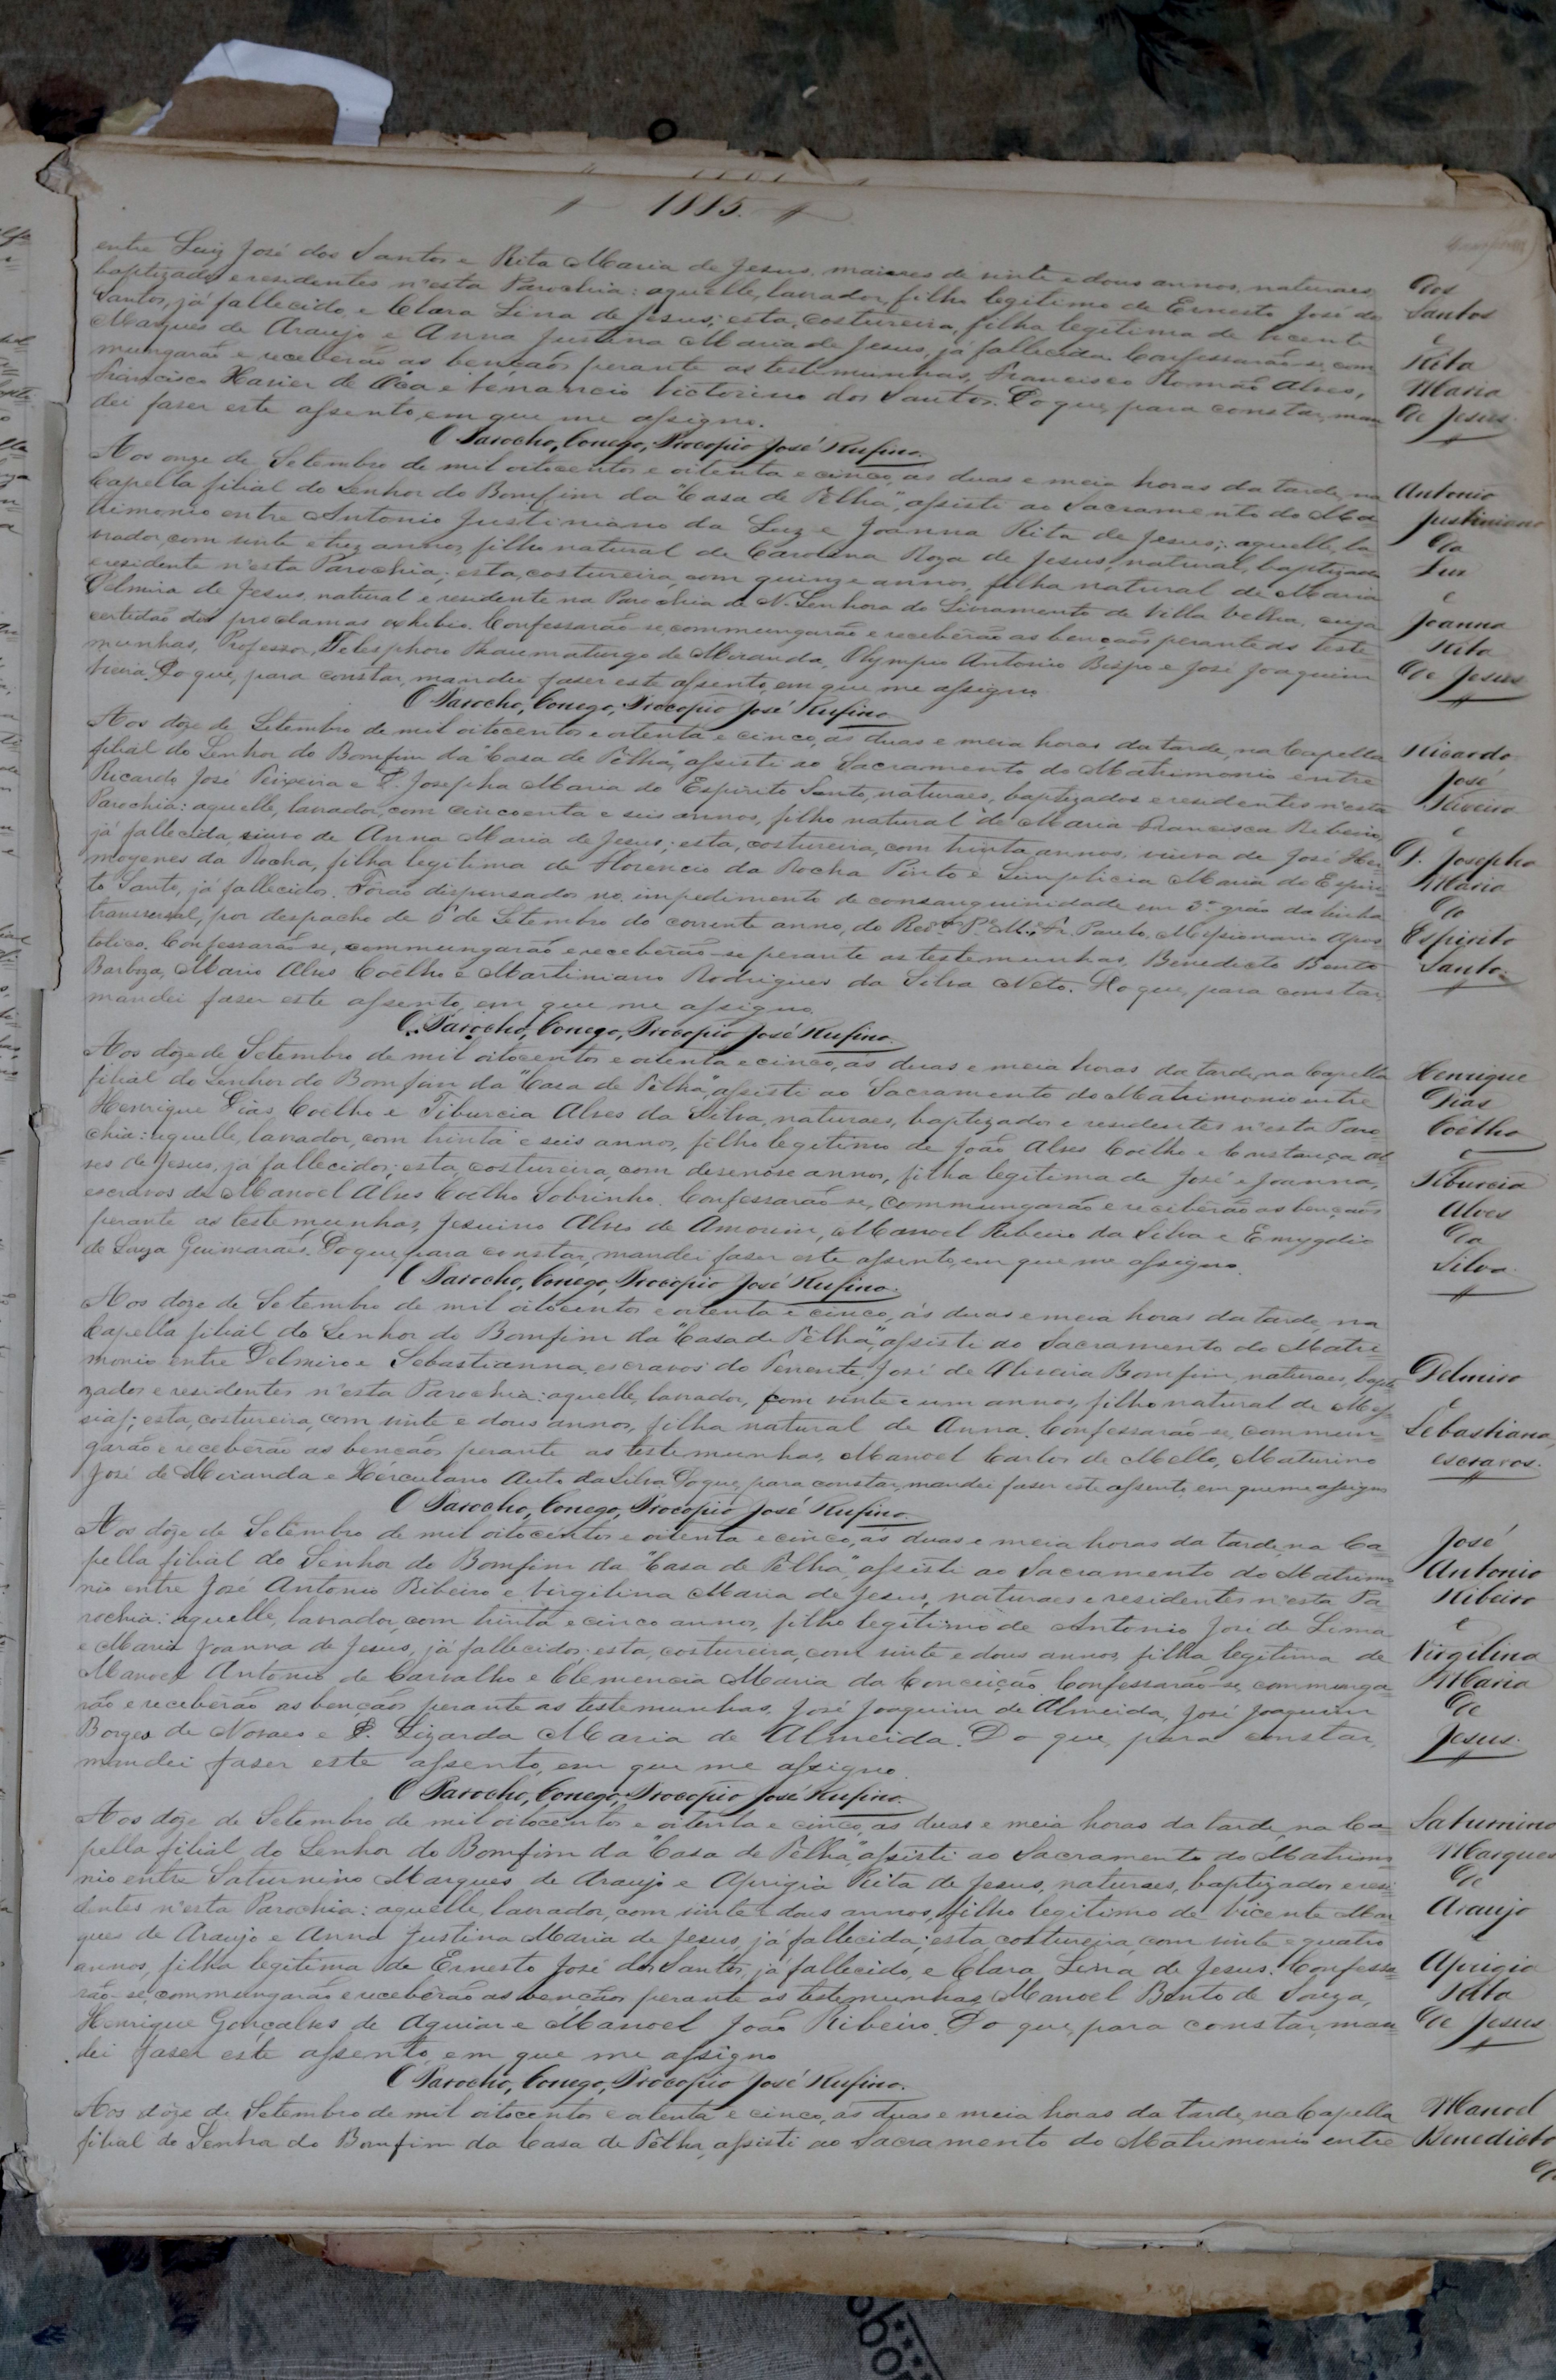 1885.
entre Luiz José dos Santos e Rita Maria de Jesus, maiores de vinte e dous annos, naturaes,
baptizados e residentes n'esta Parochia: aquelle, lavrador, filho legitimo de Ernesto José dos
Santos, já fallecido, e Clara Lina de Jesus; esta, costureira, filha legitima de Vicente
Marques de Araujo e Anna Justina Maria de Jesus, já fallecida. Confessarão-se, com
mungarão e receberão as bençãos perante as testemunhas, Francisco Romão Alves,
Francisco Xavier de e Venancio Victorino dos Santos. Do que, para constar, man
dei faser este assento, em que me assigno.
O Parocho, Conego, Procopio José Rufino.
dos
Santos
e
Rita
Maria
de Jesus.
Aos onze de Setembro de mil oitocentos e oitenta e cinco, as duas e meia horas da tarde, na
Capella filial do Senhor do Bomfim da "Casa de Têlha", assisti ao Sacramento do Ma-
trimonio entre Antonio Justiniano da Luz e Joanna Rita de Jesus; aquelle, la-
vrador, com vinte e trez annos, filho natural de Carolina Roza de Jesus, natural, baptizado
e residente n'esta Parochia; esta, costureira, com quinze annos, filha natural de Maria
Delmira de Jesus, natural e residente na Parochia de N. Senhora do Livramento de Villa Velha, cuja
certidão dos proclamas exhibio. Confessarão-se, commungarão e receberão as bençãos perante as teste
munhas, Professor, Telesphoro Thaumaturgo de Miranda, Olympio Antonio Bispo e José Joaquim
Vieira. Do que, para constar, mandei faser este assento, em que me assigno
O Parocho, Conego, Procopio José Rufino
Antonio
Justiniano
da
Luz
e
Joanna
Rita
de Jesus
Aos doze de Setembro de mil oitocentos e oitenta e cinco, as duas e meia horas da tarde, na Capella
filial do Senhor do Bomfim da "Casa de Têlha", assisti ao Sacramento do Matrimonio entre
Ricardo José Teixeira e D. Josepha Maria do Espirito Santo, naturaes, baptizados e residentes n'esta
Parochia: aquelle, lavrador, com cincoenta e seis annos, filho natural de Maria Francisca Ribeiro,
já fallecida, viuvo de Anna Maria de Jesus; esta, costureira, com trinta annos, viuva de José Her-
mogenes da Rocha, filha legitima de Florencio da Rocha Pinto e Simplicia Maria do Espiri
to Santo, já fallecidos. Forão dispensados no impedimento de consanguinidade em 3.º gráo da linha
transversal, por despacho de de Setembro do corrente anno, do Fr. Paulo, Missionario Apos
tolico. Confessarão-se, commungarão e receberão-se perante as testemunhas, Benedicto Bento
Barboza, Mario Alves Coêlho e Martiniano Rodrigues da Silva Neto. Do que, para constar,
mandei faser este assento, em que me assigno.
O Parocho, Conego, Procopio José Rufino.
Ricardo
José
Teixeira
e
D. Josepha
Maria
do
Espirito
Santo.
Aos doze de Setembro de mil oitocentos e oitenta e cinco, as duas e meia horas da tarde, na Capella
filial do Senhor do Bomfim da "Casa de Têlha", assisti ao Sacramento do Matrimonio entre
Henrique Dias Coêlho e Tiburcia Alves da Silva, naturaes, baptizados e residentes n'esta Paro-
chia: aquelle, lavrador, com trinta e seis annos, filho legitimo de João Alves Coêlho e Constança Al
ves de Jesus, já fallecidos; esta, costureira, com desenove annos, filha legitima de José e Joanna,
escravos de Manoel Alves Coêlho Sobrinho. Confessarão-se, commungarão e receberão as bençãos
perante as testemunhas, Jesuino Alves de Amorim, Manoel Ribeiro da Silva e Emygdio
de Souza Guimarães. Do que, para constar, mandei faser este assento, em que me assigno.
O Parocho, Conego, Procopio José Rufino.
Henrique
Dias
Coêlho
e
Tiburcia
Alves
da
Silva.
Aos doze de Setembro de mil oitocentos e oitenta e cinco, ás duas e meia horas da tarde, na
Capella filial do Senhor do Bomfim da "Casa de Têlha", assisti ao Sacramento do Matri-
monio entre Delmiro e Sebastianna, escravos do Tenente José de Oliveira Bomfim, naturaes, bapti
zados e residentes n'esta Parochia: aquelle, lavrador, com vinte e um annos, filho natural de Mes-
sias; esta, costureira, com vinte e dous annos, filha natural de Anna. Confessarão-se, commun-
garão e receberão as bençãos perante as testemunhas, Manoel Carlos de Mello, Maturino
José de Miranda e Hérculano Auto da Silva. Do que, para constar, mandei faser este assento em que me assigno
O Parocho, Conego, Procopio José Rufino
Delmiro
e
Sebastiana,
escravos.
Aos doze de Setembro de mil oitocentos e oitenta e cinco, ás duas e meia horas da tarde, na Ca-
pella filial do Senhor do Bomfim da "Casa de Têlha", assisti ao Sacramento do Matrimo
nio entre José Antonio Ribeiro e Virgilina Maria de Jesus, naturaes e residentes n'esta Pa-
rochia: aquelle, lavrador, com trinta e cinco annos, filho legitimo de Antonio José de Lima
e Maria Joanna de Jesus, já fallecidos; esta, costureira, com vinte e dous annos, filha legitima de
Manoel Antonio de Carvalho e Clemencia Maria da Conceição. Confessarão-se, communga-
rão e receberão as bençãos perante as testemunhas, José Joaquim de Almeida, José Joaquim
Borges de Novaes e D. Lizarda Maria de Almeida. Do que, para constar,
mandei faser este assento, em que me assigno.
O Parocho, Conego, Procopio José Rufino.
José
Antonio
Ribeiro
e
Virgilina
Maria
de
Jesus.
Aos doze de Setembro de mil oitocentos e oitenta e cinco, as duas e meia horas da tarde, na Ca-
pella filial do Senhor do Bomfim da "Casa de Têlha", assisti ao Sacramento do Matrimo
nio entre Saturnino Marques de Araujo e Aprigia Rita de Jesus, naturaes, baptizados e resi-
dentes n'esta Parochia: aquelle, lavrador, com vinte e dous annos, filho legitimo de Vicente Mar
ques de Araujo e Anna Justina Maria de Jesus, já fallecida; esta, costureira, com vinte e quatro
annos, filha legitima de Ernesto José dos Santos, já fallecido, e Clara Lina de Jesus. Confessa-
rão-se, commungarão e receberão as bençãos perante as testemunhas, Manoel Bento de Souza,
Henrique Gonçalves de Aguiar e Manoel João Ribeiro. Do que, para constar, man-
dei faser este assento, em que me assigno
O Parocho, Conego, Procopio José Rufino.
Saturnino
Marques
de
Araujo
e
Aprigia
Rita
de Jesus
Aos doze de Setembro de mil oitocentos e oitenta e cinco, ás duas e meia horas da tarde, na Capella
filial do Senhor do Bomfim da Casa de Têlha, assisti ao Sacramento do Matrimonio entre
Manoel
Benedicto